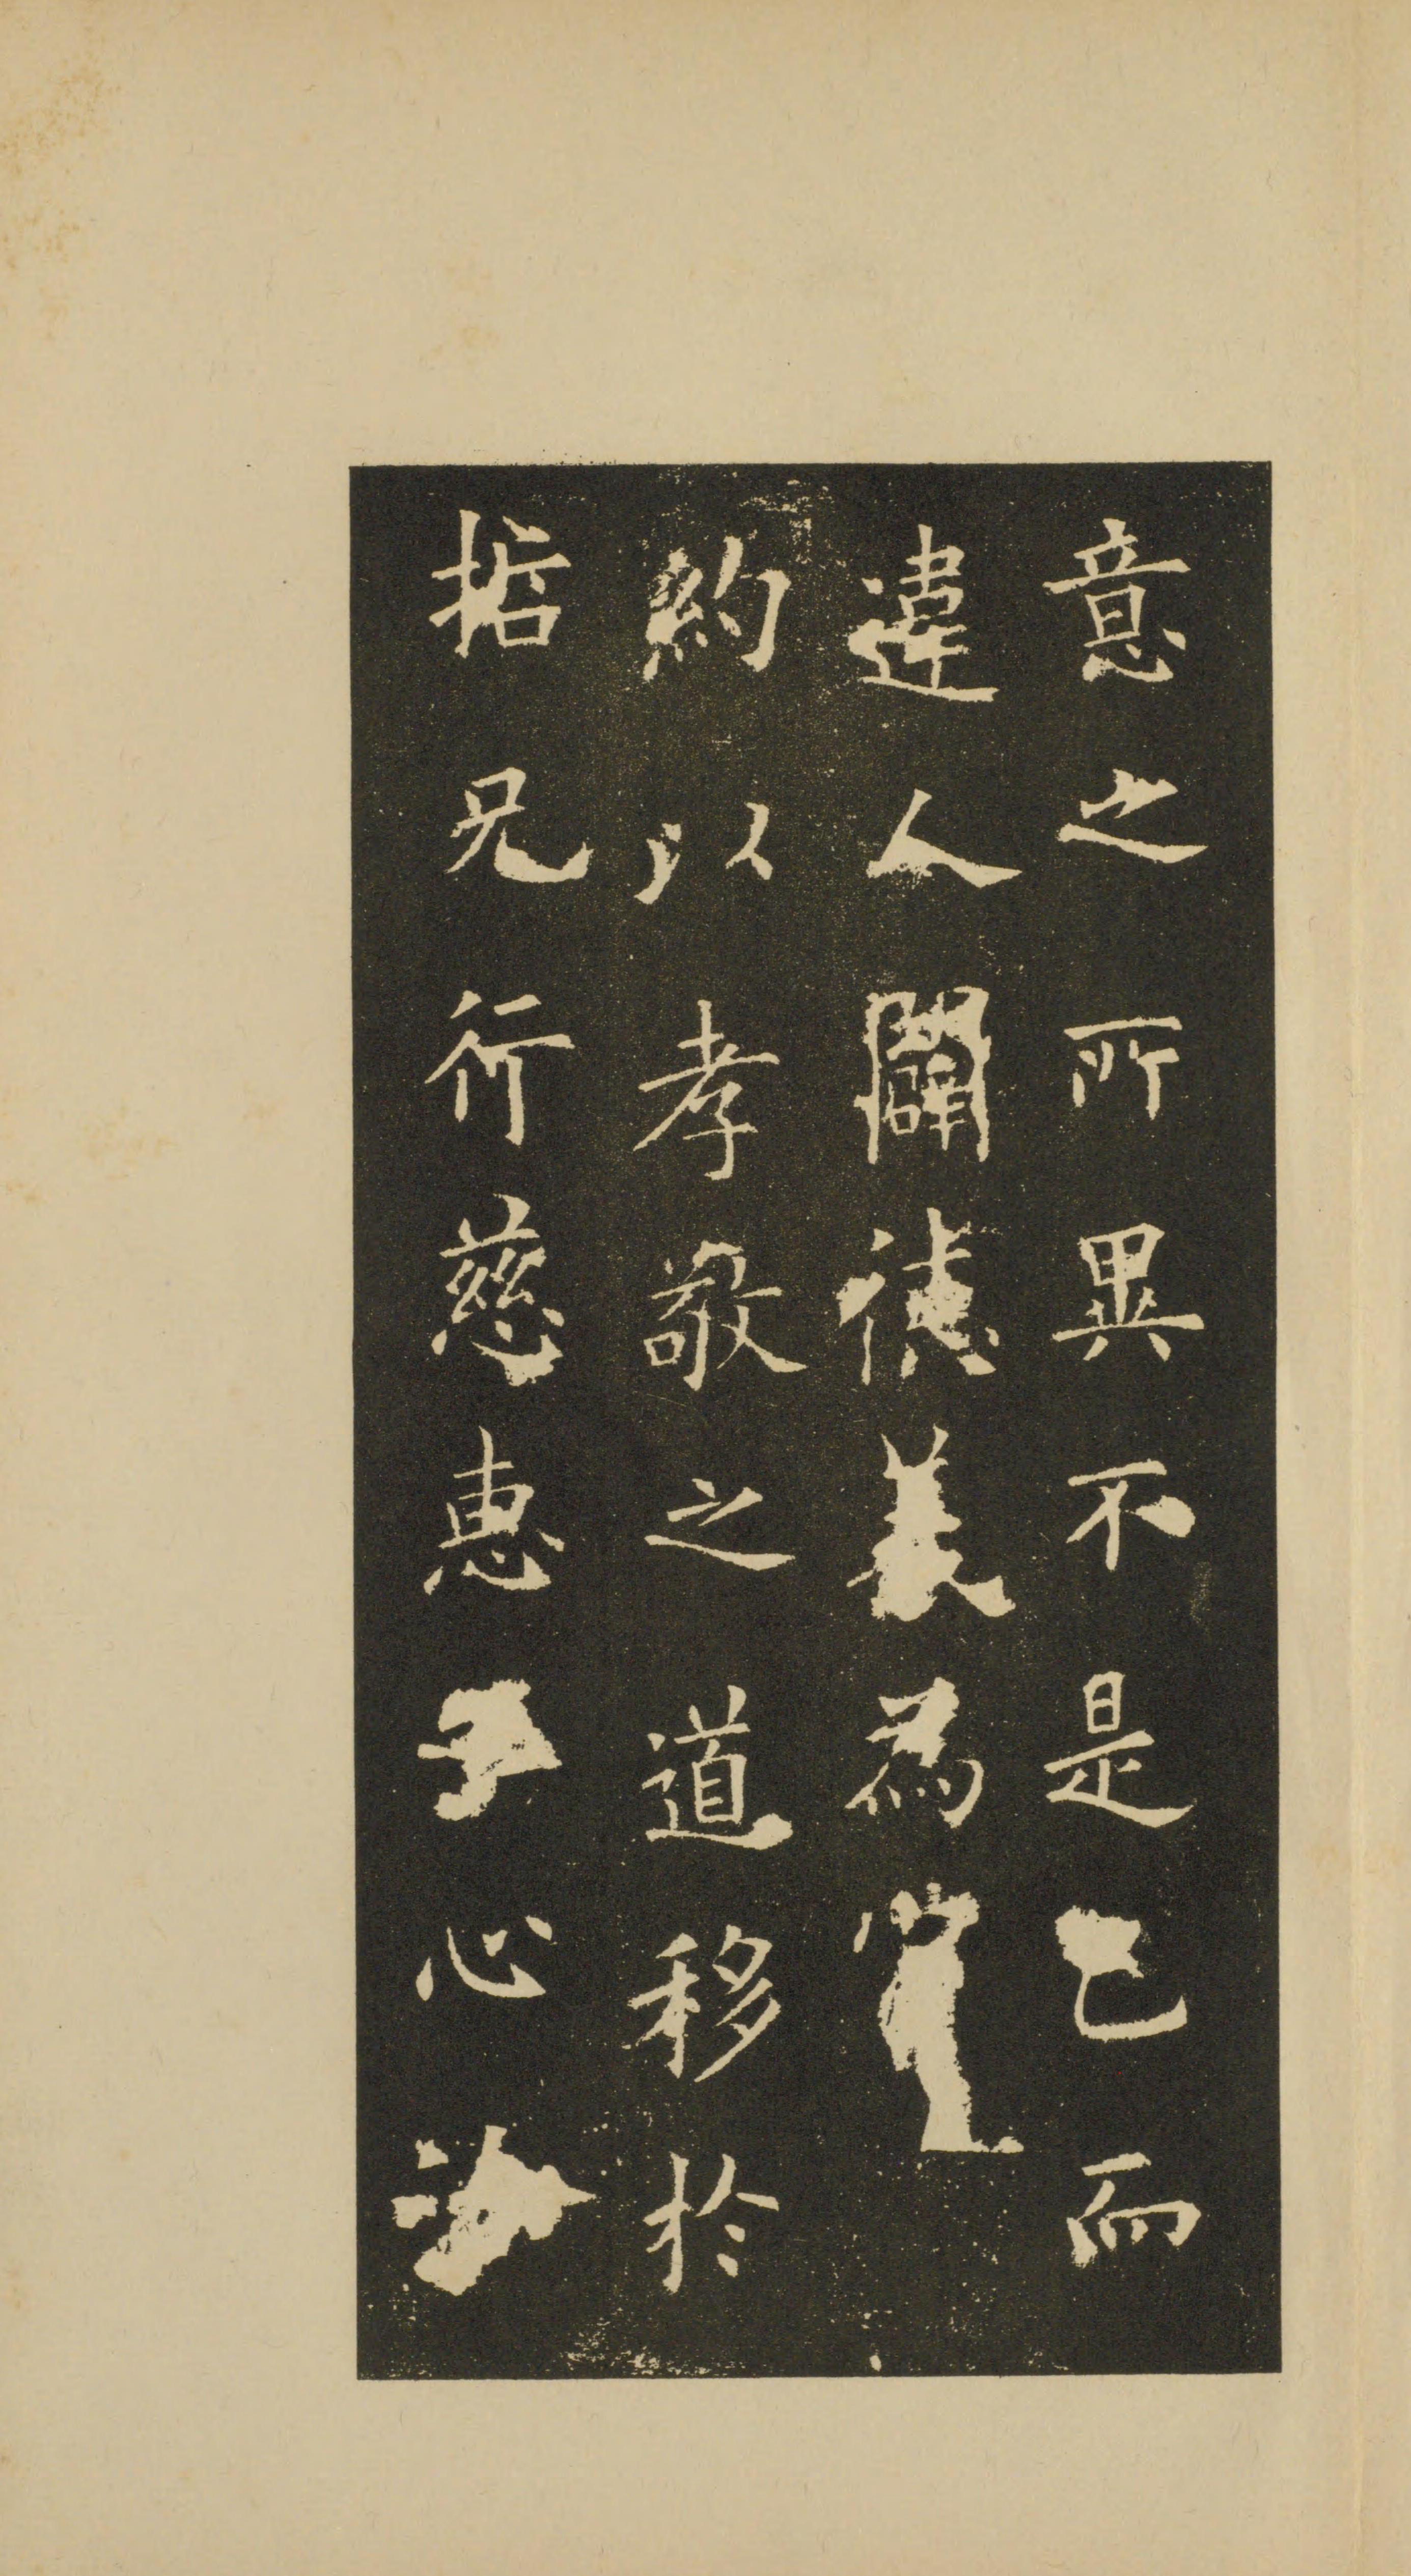 意之所異不是己而
違人闡德義為
約以孝敬之道移於
哲兄行慈惠于心